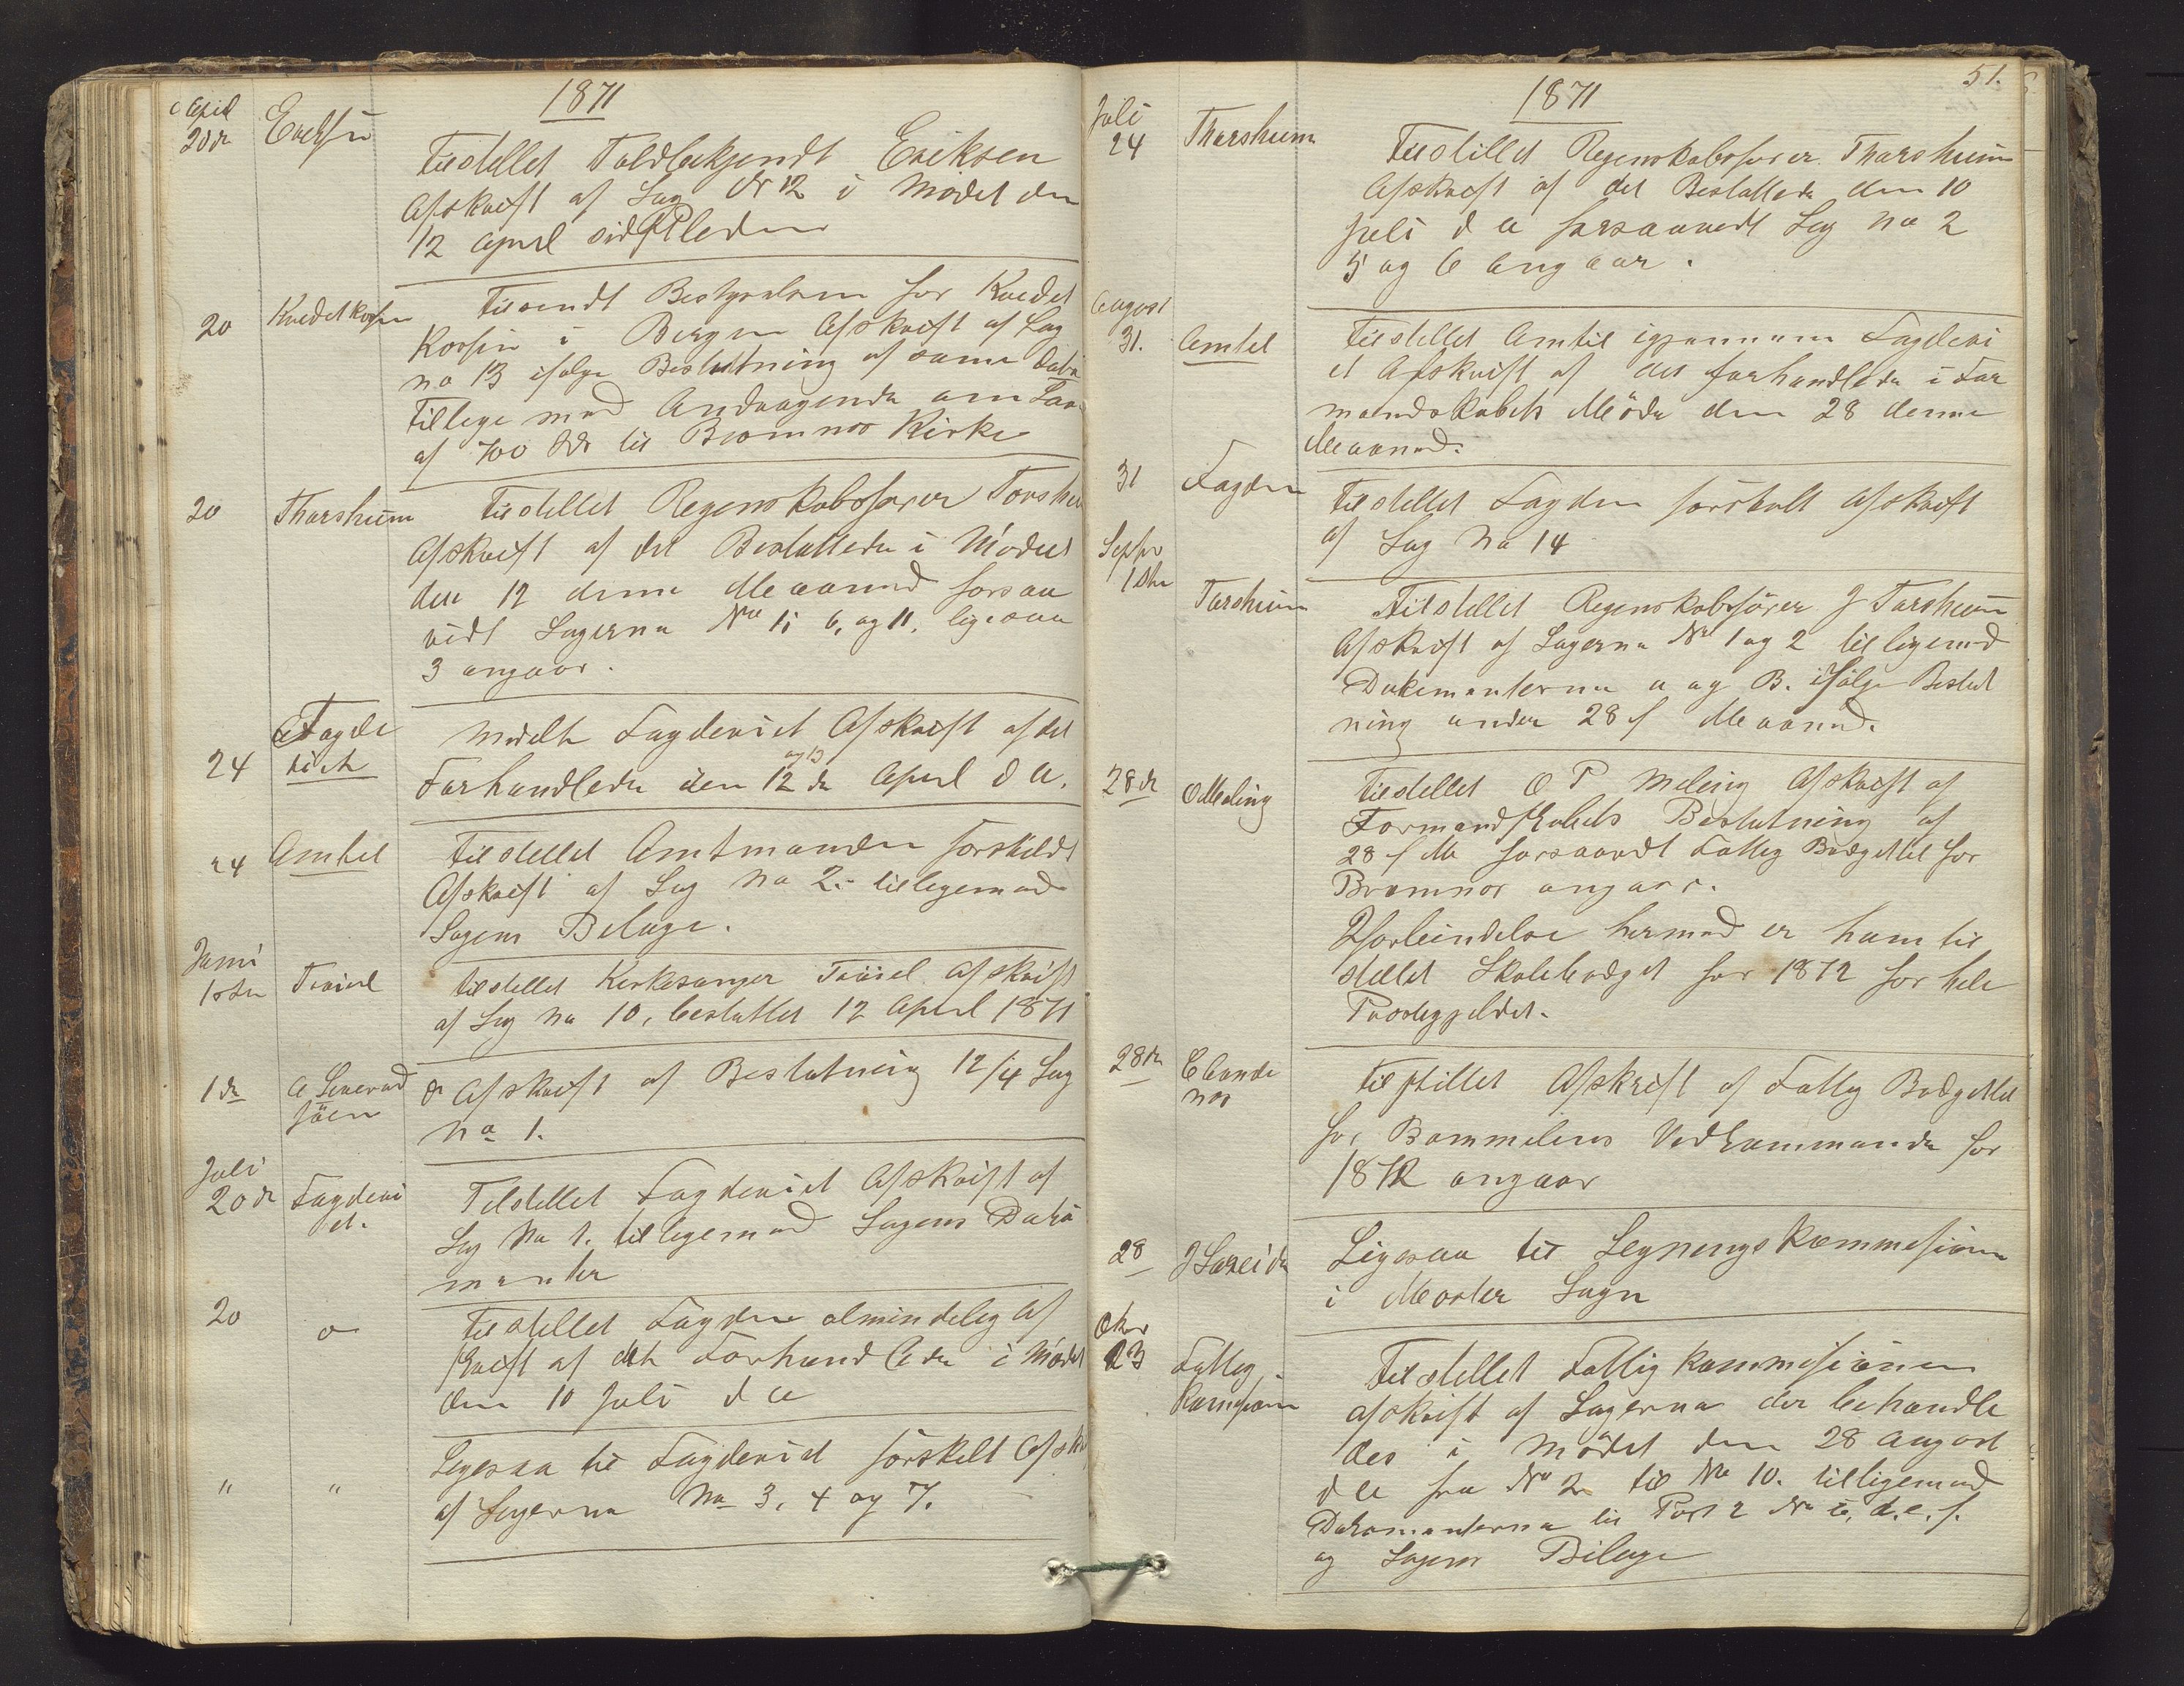 1871
April
20de
Eriksen
Tilstillet Toldbetjendt Eriksen
Afskrift af Sag No 12 i Mödet den
12 April sidstleden
20
Tilsendt Bestyrelsen for Kredit
Kassen i Bergen Afskrift af Sag
no 13 ifølge Beslutning af same Dato
Tillige med Andragende om Laan
af 700 Spd til Bremnæs Kirke
20
Thorsheim
Tilstillet Regnskabsfører Torshei
Afskrift af det Besluttede i Mödet
den 12 denne Maaned forsaa
vidt Sagerne No 1, 6, og 11, ligesaa
3 angaar.
24
Fogde
riet
Meddelt Fogderiet Afskrift af det
og 13
Forhandlede den 12 de April d A.
24
Amtet
Tilstillet Amtmanden særskildt
Afskrift af Sag No 2. tilligemed
Sagens Belage.
Juni
1ste
Tilstillet Kirkesanger Afskrift
af Sag No 10, besluttet 12 April 1871
1de
Afskrift af Beslutning 12/4 Sag
No 1.
Juli
20de
Fogderi
et.
Tilstillet Fogderiet Afskrift af
Sag No 1. tilligemed Sagens Doku
menter
20
o
Tilstillet Fogden almindelig Af
skrift af det Forhandlede i Mödet
den 10 Juli d A
" "
Ligesaa til Fogderiet særskelt Afskr
af Sagerne No 3, 4 og 7.
51.
1871
Juli
24
Thorsheim
Tilstillet Regnskabsfører Thorsheim
Afskrift af det Besluttede den 10
Juli d A forsaavidt Sag No 2
5 og 6 angaar.
August
31.
Amtet
Tilstillet Amtet igjennem Fogderi
et Afskrift af det forhandlede i For
mandskabets Möde den 28 denne
Maaned.
31
Fogden
Tilstillet Fogden særskelt Afskrift
af Sag No 14
Septbr
1ste
Torsheim
Tilstillet Regnskabsförer J Torsheim
Afskrift af Sagerne No 1 og 2 tilligemed
Dokumenterne a og B. ifölge Beslut
ning under 28 f Maaned.
28de
O Meling
Tilstillet O P Meling Afskrift af
Formandskabets Beslutning af
28 f M forsaavidt Fattig Budgettet for
Bremnæs angaar.
I forbindelse hermed er ham til
stillet Skolebudget for 1872 for hele
Præstegjeldet.
28de
Tilstillet Afskrift af Fattig Budgettet
for Bømmeløens Vedkommende for
1872 angaar
28
Ligesaa til Ligningskommesionen
i Moster Sogn
Oktbr
23
Fattig
Komesionen
Tilstillet Fattigkommesionen
afskrift af Sagerne der behandle
des i Mödet den 28 August
d A fra No 2 til No 10. tilligemed
Dokumenterne til Post 2 No c, d. e. f.
og Sagens Bilage